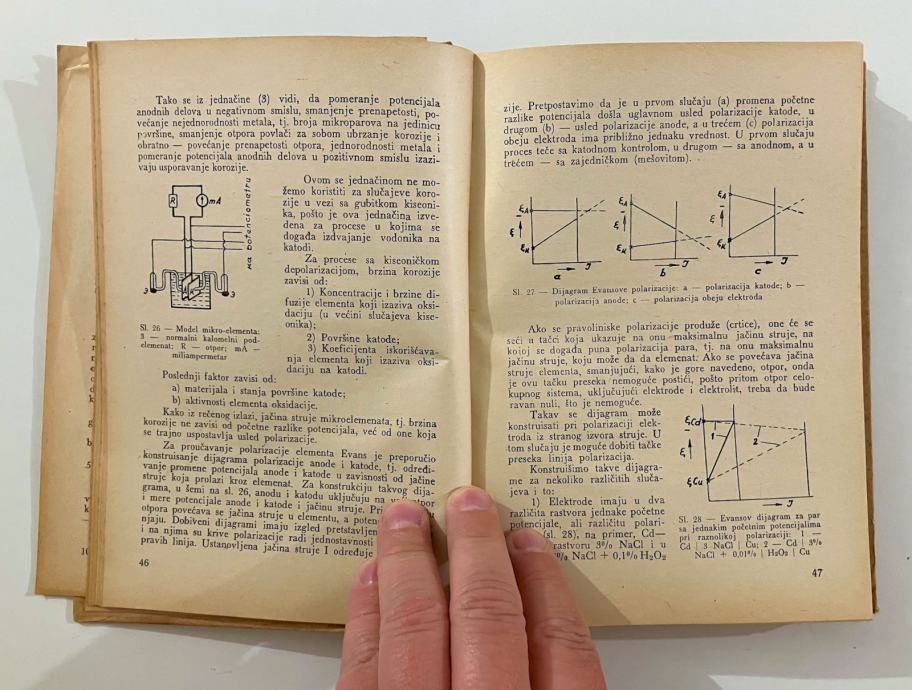 Tako se iz jednačine (3) vidi, da pomeranje potencijala
anodnih delova u negativnom smislu, smanjenje prenapetosti, po-
većanje nejednorodnosti metala, tj. broja mikroparova na jedinicu
površine, smanjenje otpora povlači za sobom ubrzanje korozije i
obratno — povećanje prenapetosti otpora, jednorodnosti metala i
pomeranje potencijala anodnih delova u pozitivnom smislu izazi-
vaju usporavanje korozije.
R
mA
на потенциометru
Э
Э
Sl. 26 — Model mikro-elementa:
Э — normalni kalomelni pod-
elemenat; R — otper; mA —
miliampermetar
Ovom se jednačinom ne mo-
žemo koristiti za slučajeve koro-
zije u vezi sa gubitkom kiseoni-
ka, pošto je ova jednačina izve-
dena za procese u kojima se
događa izdvajanje vodonika na
katodi.
Za procese sa kiseoničkom
depolarizacijom, brzina korozije
zavisi od:
1) Koncentracije i brzine di-
fuzije elementa koji izaziva oksi-
daciju (u većini slučajeva kise-
onika);
2) Površine katode;
3) Koeficijenta iskorišćava-
nja elementa koji izaziva oksi-
daciju na katodi.
Poslednji faktor zavisi od:
a) materijala i stanja površine katode;
b) aktivnosti elementa oksidacije.
Kako iz rečenog izlazi, jačina struje mikroelemenata, tj. brzina
korozije ne zavisi od početne razlike potencijala, već od one koja
se trajno uspostavlja usled polarizacije.
Za proučavanje polarizacije elementa Evans je preporučio
konstruisanje dijagrama polarizacije anode i katode, tj. određi-
vanje promene potencijala anode i katode u zavisnosti od jačine
struje koja prolazi kroz elemenat. Za konstrukciju takvog dija-
grama, u šemi na sl. 26, anodu i katodu uključuju na
i mere potencijale anode i katode i jačinu struje. Pri
otpora povećava se jačina struje u elementu, a
njaju. Dobiveni dijagrami imaju izgled
i na njima su krive polarizacije radi jednostavnosti
pravih linija. Ustanovljena jačina struje I određuje
46
zije. Pretpostavimo da je u prvom slučaju (a) promena početne
razlike potencijala došla uglavnom usled polarizacije katode, u
drugom (b) — usled polarizacije anode, a u trećem (c) polarizacija
obeju elektroda ima približno jednaku vrednost. U prvom slučaju
proces teče sa katodnom kontrolom, u drugom — sa anodnom, a u
trećem — sa zajedničkom (mešovitom).
ξA
ξ
ξK
a
J
ξA
ξ
ξK
b
J
ξA
ξ
ξK
c
J
Sl. 27 — Dijagram Evansove polarizacije: a — polarizacija katode; b —
polarizacija anode; c — polarizacija obeju elektroda
Ako se pravoliniske polarizacije produže (crtice), one će se
seći u tačci koja ukazuje na onu maksimalnu jačinu struje, na
kojoj se događa puna polarizacija para, tj. na onu maksimalnu
jačinu struje, koju može da da elemenat. Ako se povećava jačina
struje elementa, smanjujući, kako je gore navedeno, otpor, onda
je ovu tačku preseka nemoguće postići, pošto pritom otpor celo-
kupnog sistema, uključujući elektrode i elektrolit, treba da bude
ravan nuli, što je nemoguće.
Takav se dijagram može
konstruisati pri polarizaciji elek-
troda iz stranog izvora struje. U
tom slučaju je moguće dobiti tačke
preseka linija polarizacija.
Konstruišimo takve dijagra-
me za nekoliko različitih sluča-
jeva i to:
1) Elektrode imaju u dva
različita rastvora jednake početne
potencijale, ali različitu polari-
(sl. 28), na primer, Cd—
rastvoru 3% NaCl i u
NaCl + 0,1% H₂O₂
ξCd
ξ
ξCu
1
2
J
Sl. 28 — Evansov dijagram za par
sa jednakim početnim potencijalima
pri raznolikoj polarizaciji: 1 —
Cd | 3 NaCl | Cu; 2 — Cd | 3%
NaCl + 0,01% | H₂O₂ | Cu
47